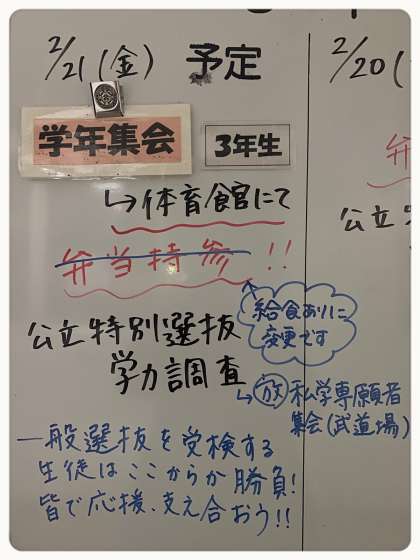 2/21(金) 予定
学年集会 3年生
↳体育館にて
弁当持参!!
給食ありに
変更です
公立特別選抜
学力調査
↳放 私学専願者
集会(武道場)
一般選抜を受検する
生徒はここからが勝負!
皆で応援、支え合おう!!
2/20(
弁
公立